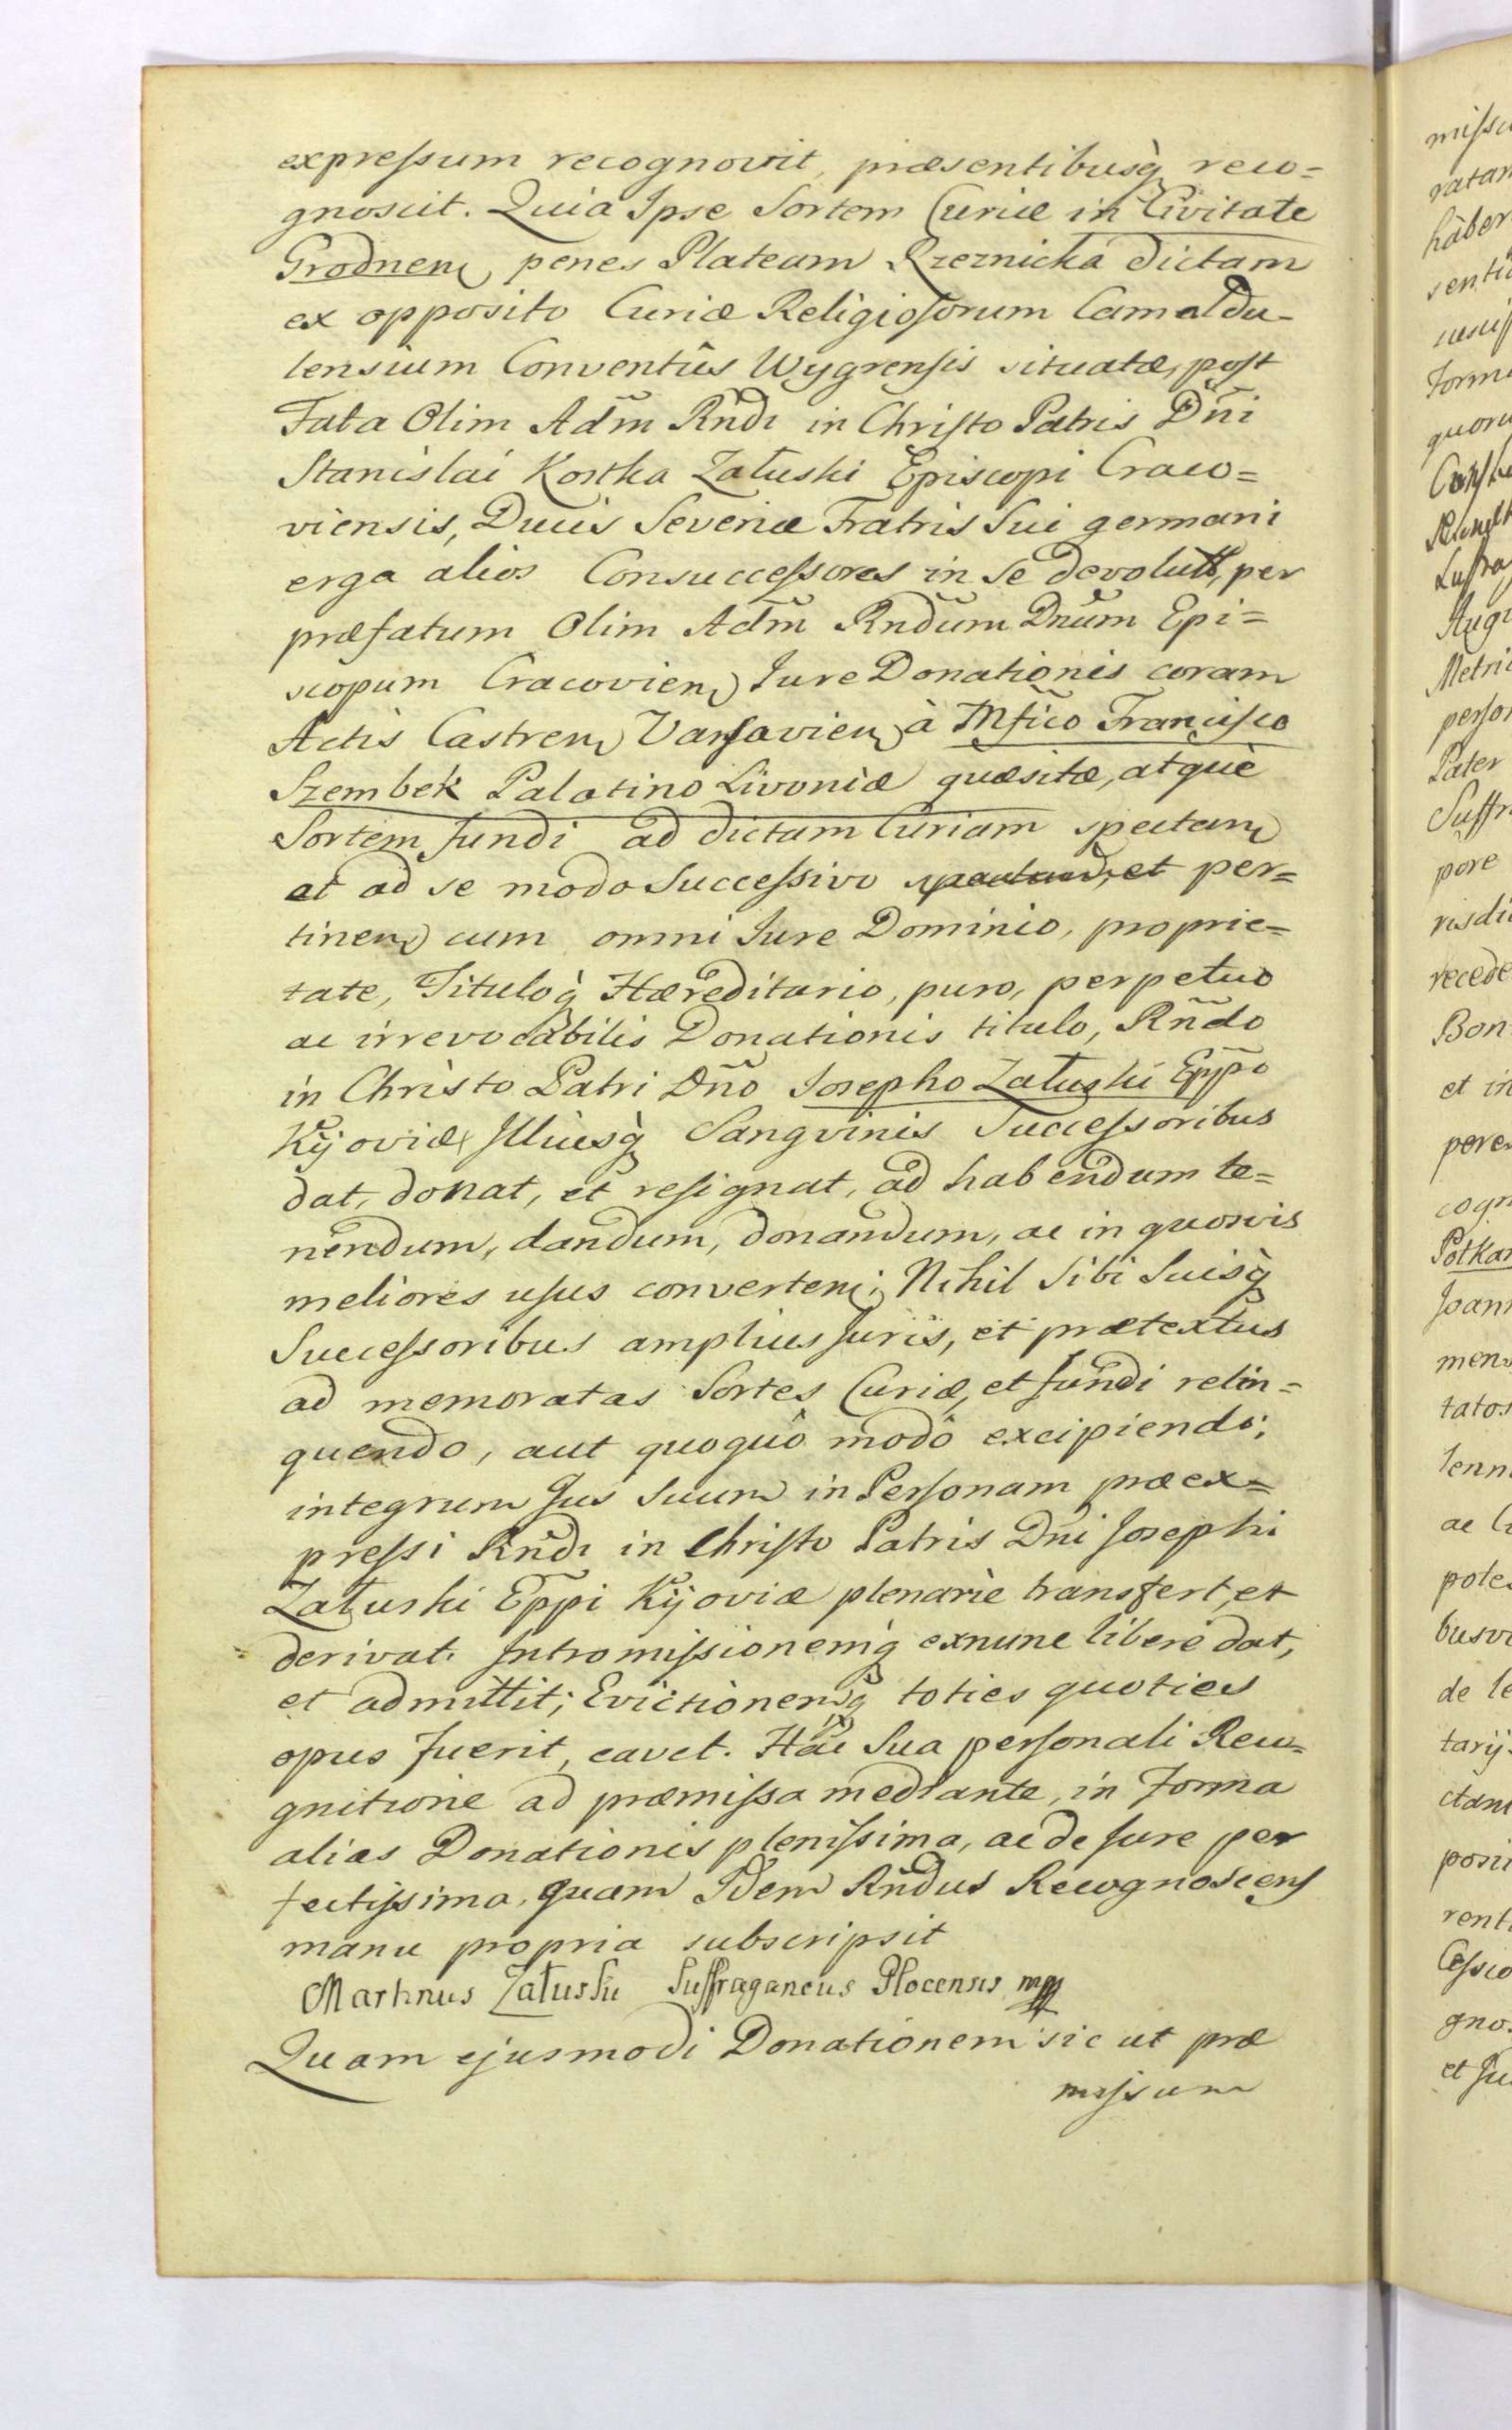 expressum recognovit, præsentibusq̀ reco=
gnoscit. Quia Ipse Sortem Curiæ in Civitate
Grodnen, penes Plateam Rzeznicka dictam
ex opposito Curiæ Religiosorum Camaldu-
lensium Conventûs Wygrensis situatæ, post
Fata Olim Adm̃ Rñdi in Christo Patris Dñi
Stanislai Kostka Załuski Episcopi Craco=
viensis, Ducis Severiæ Fratris Sui germani
erga alios Consuccessores in Se devolut, per
præfatum Olim Adm̃ Rñdum Dnũm Epi=
scopum Cracovien, Jure Donationis coram
Actis Castren, Varsavien, à Mfico Francisco
Szembek Palatino Livoniæ quæsitæ, atquè
Sortem fundi ad dictam Curiam spectan
et ad se modo Successivo spectand, et per=
tinen, cum omni Jure Dominio, proprie=
tate, Tituloq̀ Hæreditario, puro, perpetuo
ac irrevocabilis Donationis titulo, Rñdo
in Christo Patri Dño Josepho Załuski Epp̃o
Kijoviæ, Illiusq̀ Sangvinis Successoribus
dat, donat, et resignat, ad habendum te=
nendum, dandum, donandum, ac in quosvis
meliores usus converten; Nihil Sibi Suisq̀
Successoribus amplius Juris, et prætextus
ad memoratas Sortes Curiæ, et fundi relin=
quendo, aut quoquô modô excipiendo;
integrum Jus Suum in Personam præex=
pressi Rñdi in Christo Patris Dñi Josephi
Załuski Epp̃i Kijoviæ plenariè transfert, et
derivat. Intromissionemq̀ exnunc liberè dat,
et admittit; Evictionemq̀ toties quoties
opus fuerit, cavet. Hac Sua personali Reco=
gnitione ad præmissa mediante, in Forma
alias Donationis plenissima, ac de Jure per
fectissima, quam Idem Rñdus Recognoscens
manu propria subscripsit
Martinus Załuski Suffraganeus Plocensis mpp
Quam ejusmodi Donationem sic ut præ
missum